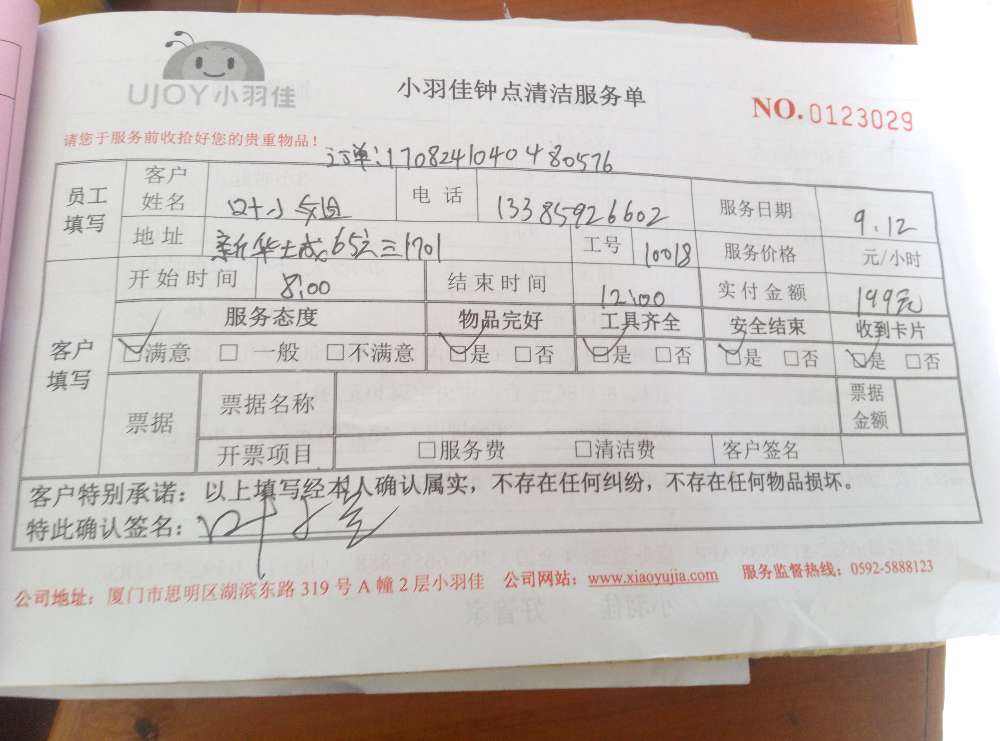 UJOY小羽佳
小羽佳钟点清洁服务单
NO.0123029
请您于服务前收拾好您的贵重物品！
订单:1708241040480576
员工填写 客户姓名 叶小 电话 13385926602 服务日期 9.12
地址 新华城65 三1701 工号 10018 服务价格 元/小时
客户填写 开始时间 8:00 结束时间 12:00 实付金额 199元
服务态度 物品完好 工具齐全 安全结束 收到卡片
☑满意 □一般 □不满意 ☑是 □否 ☑是 □否 ☑是 □否 ☑是 □否
票据 票据名称 票据金额
开票项目 □服务费 □清洁费 客户签名
客户特别承诺：以上填写经本人确认属实，不存在任何纠纷，不存在任何物品损坏。
特此确认签名：叶小
公司地址：厦门市思明区湖滨东路 319 号 A 幢 2 层小羽佳 公司网站：www.xiaoyujia.com 服务监督热线：0592-5888123